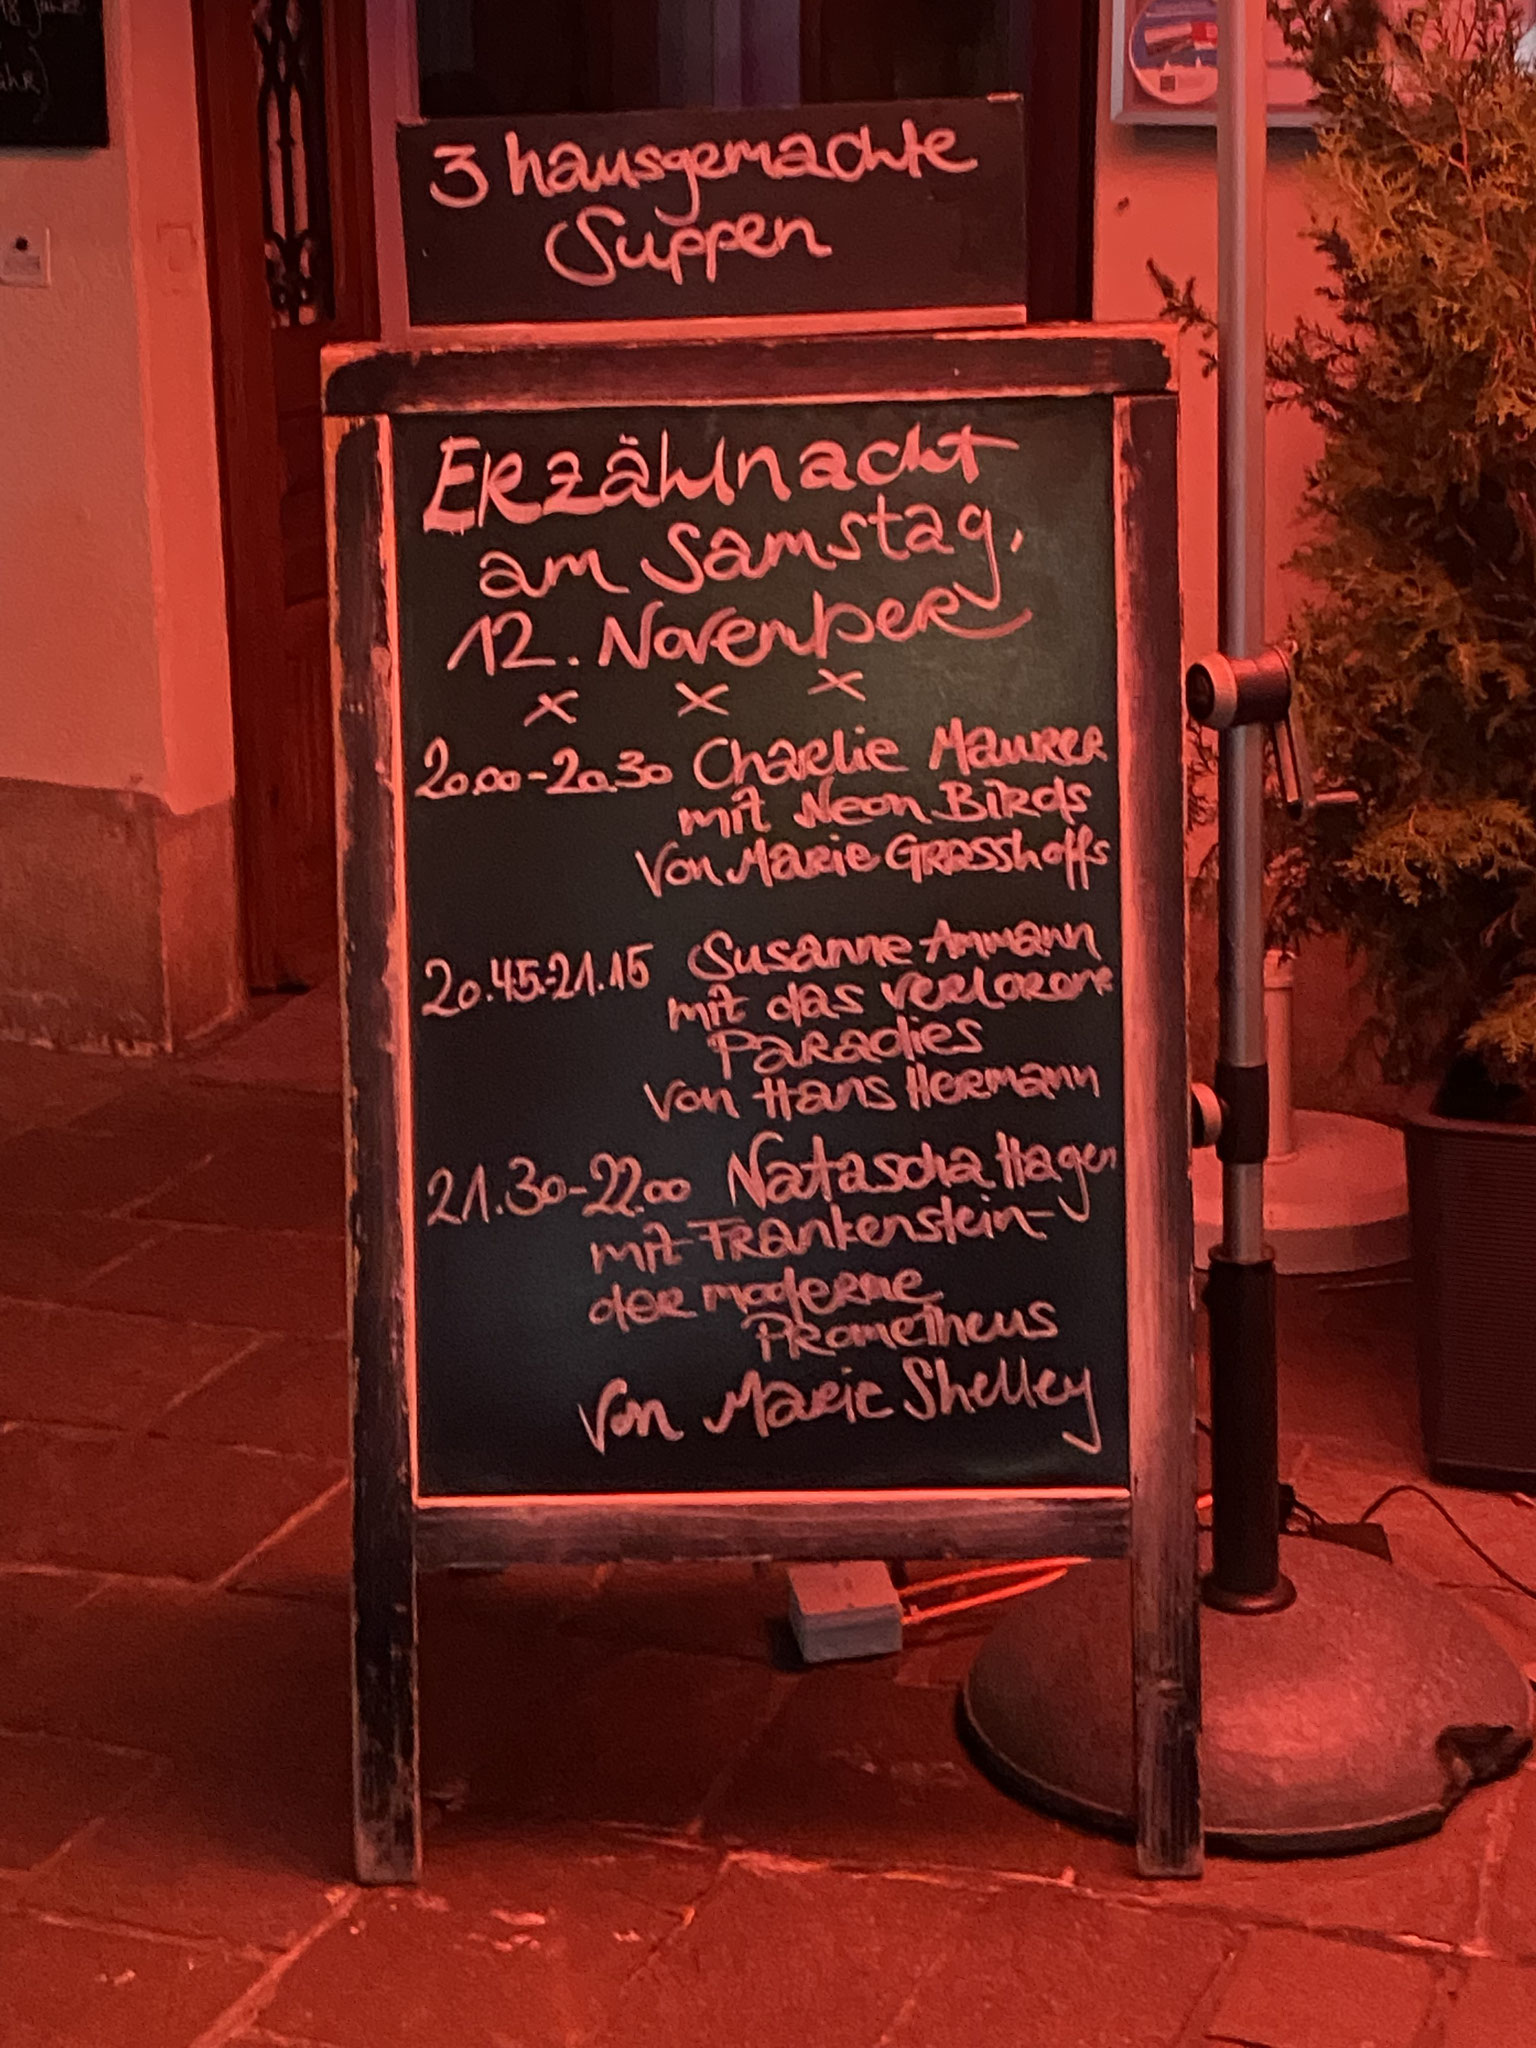 3 hausgemachte
Suppen
Erzählnacht
am Samstag,
12. November
x x x
20.00-20.30 Charlie Maurer
mit Neon Birds
von Marie Grasshoffs
20.45-21.15 Susanne Ammann
mit das verlorene
Paradies
von Hans Hermann
21.30-22.00 Natascha Hagen
mit Frankenstein-
der moderne
Prometheus
von Marie Shelley